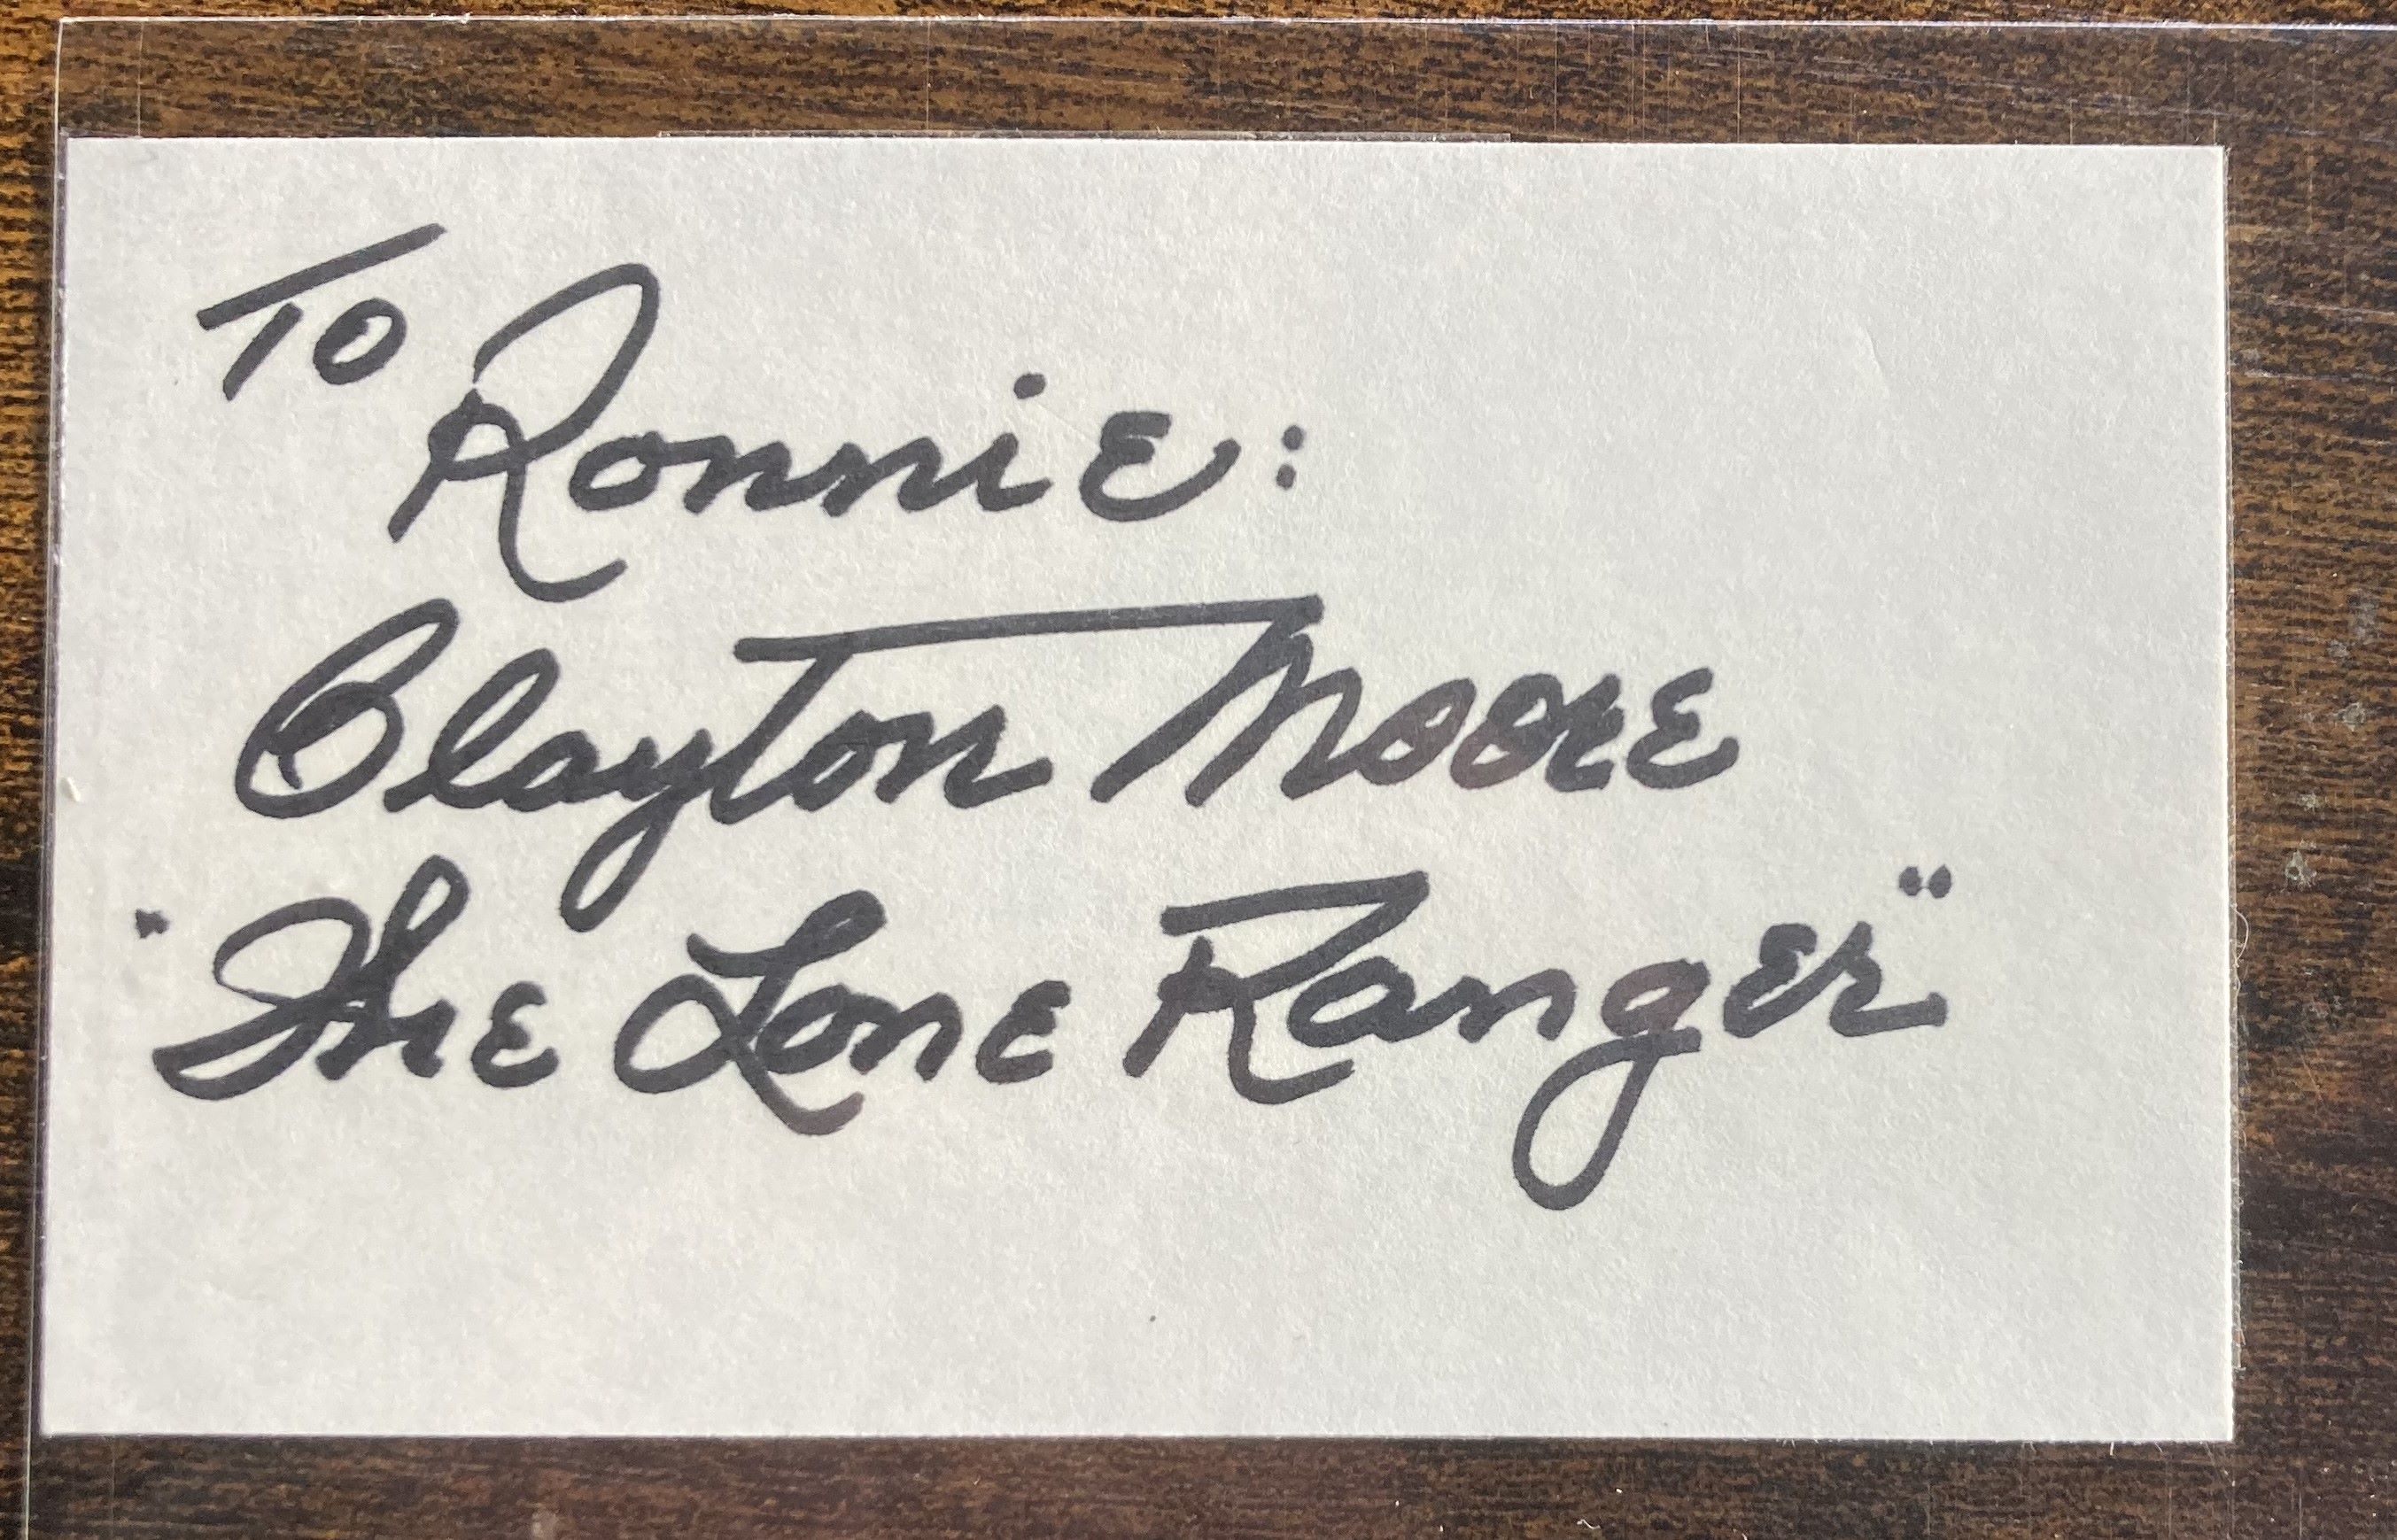 To
Ronnie:
Clayton Moore
"The Lone Ranger"